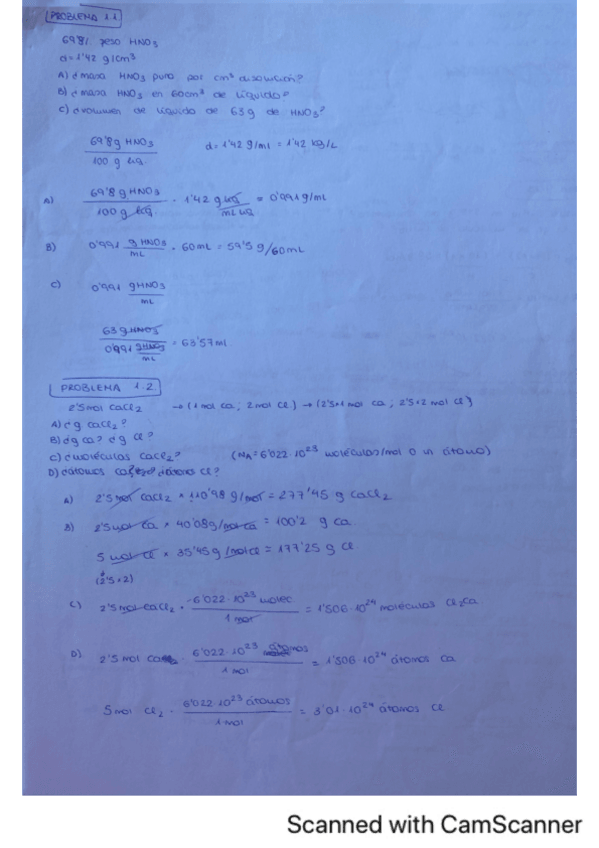 PROBLEMA 1.1
69'8% peso HNO3
d=1'42 g/cm³
A) ¿masa HNO3 puro por cm³ disolución?
B) ¿masa HNO3 en 60cm³ de líquido?
C) ¿volumen de líquido de 63g de HNO3?
69'8g HNO3 / 100 g liq d=1'42 g/ml = 1'42 kg/L
A) 69'8 g HNO3 / 100 g liq · 1'42 g liq / mL liq = 0'991 g/mL
B) 0'991 g HNO3 / mL · 60mL = 59'5 g/60mL
C) 0'991 gHNO3 / mL
63 g HNO3 / 0'991 gHNO3/mL = 63'57mL
PROBLEMA 1.2
2'5mol CaCl2 → (1 mol Ca; 2mol Cl) → (2'5×1 mol Ca; 2'5×2 mol Cl)
A) ¿g CaCl2?
B) ¿g Ca? ¿g Cl?
C) ¿moléculas CaCl2? (NA=6'022·10²³ moléculas/mol o un átomo)
D) ¿átomos Ca? ¿átomos Cl?
A) 2'5 mol CaCl2 × 110'98 g/mol = 277'45 g CaCl2
B) 2'5 mol Ca × 40'08g/mol Ca = 100'2 g Ca
5 mol Cl × 35'45 g/mol Cl = 177'25 g Cl
(2'5×2)
C) 2'5 mol CaCl2 · 6'022·10²³ molec / 1 mol = 1'506·10²⁴ moléculas Cl2Ca
D) 2'5 mol Ca · 6'022·10²³ átomos / 1 mol = 1'506·10²⁴ átomos Ca
5mol Cl2 · 6'022·10²³ átomos / 1 mol = 3'01·10²⁴ átomos Cl
Scanned with CamScanner